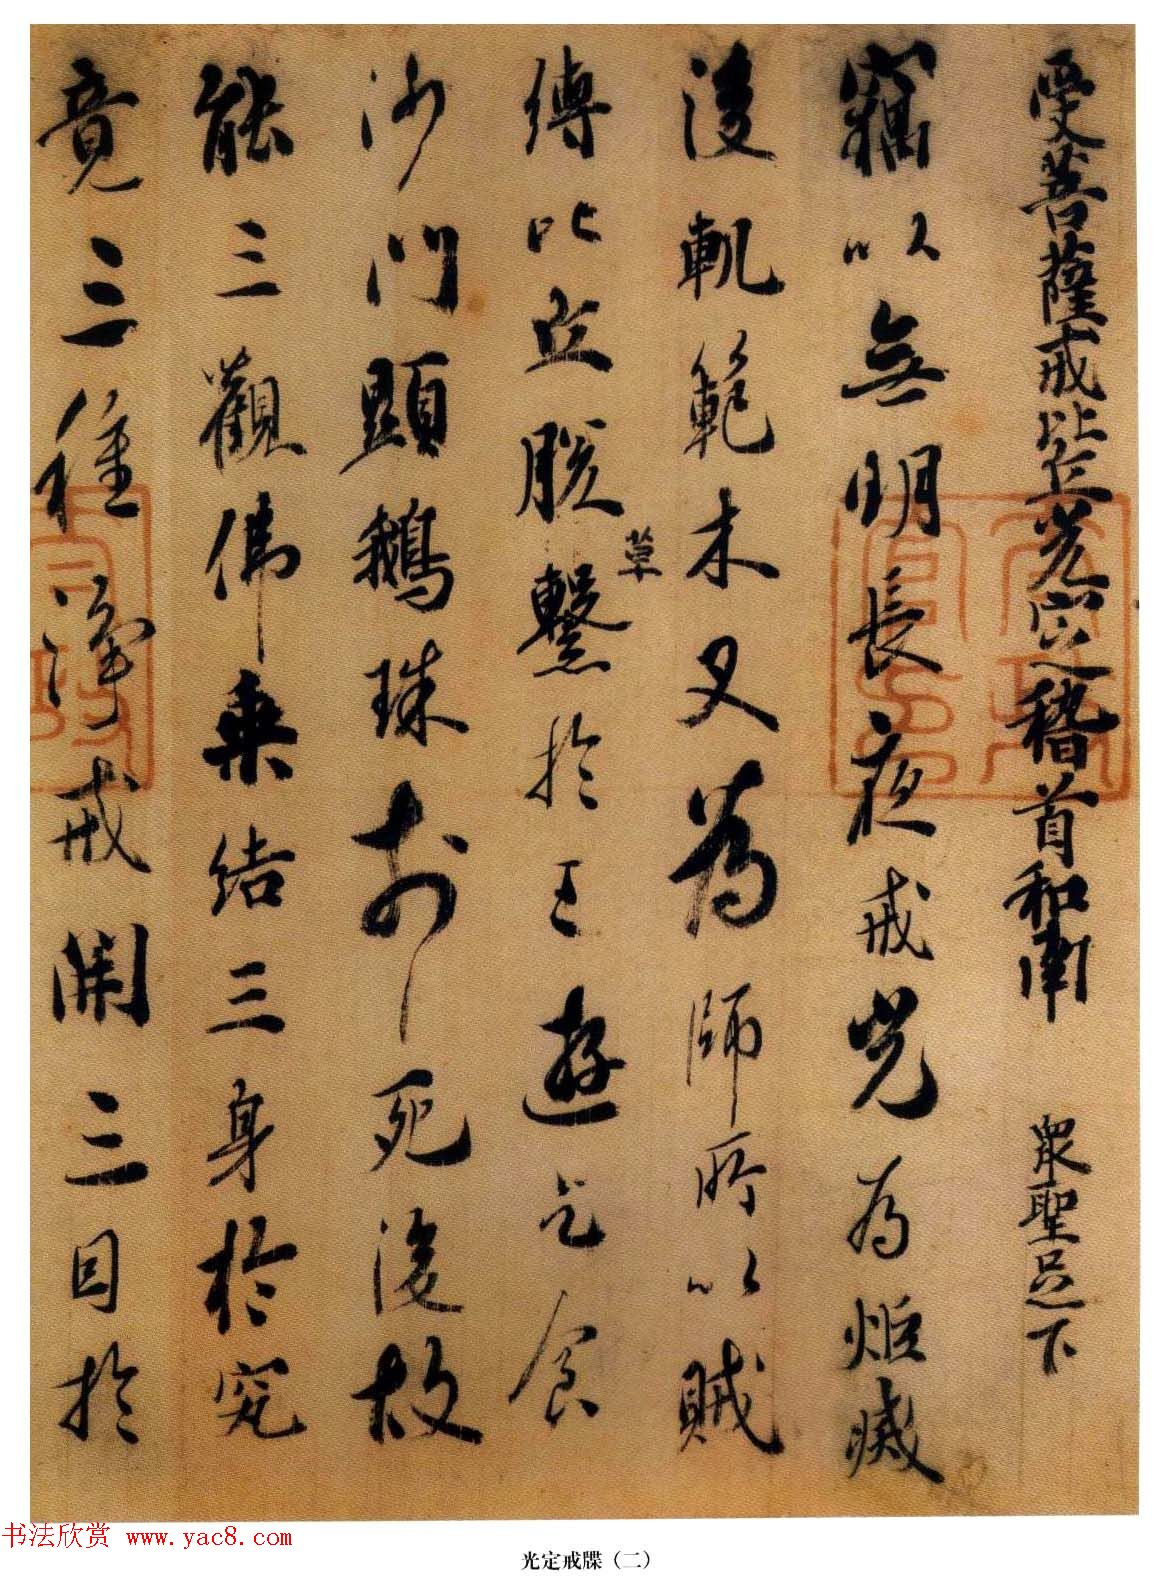 受菩薩戒比丘光定稽首和南 衆聖足下
竊以無明長夜戒光為炬滅
後軌範木叉為師所以賊
縛比丘脱繫於王遊乞食
草
沙門顯鵝珠於死後故
能三觀佛乘結三身於究
竟三種淨戒開三目於
书法欣赏 www.yac8.com
光定戒牒（二）